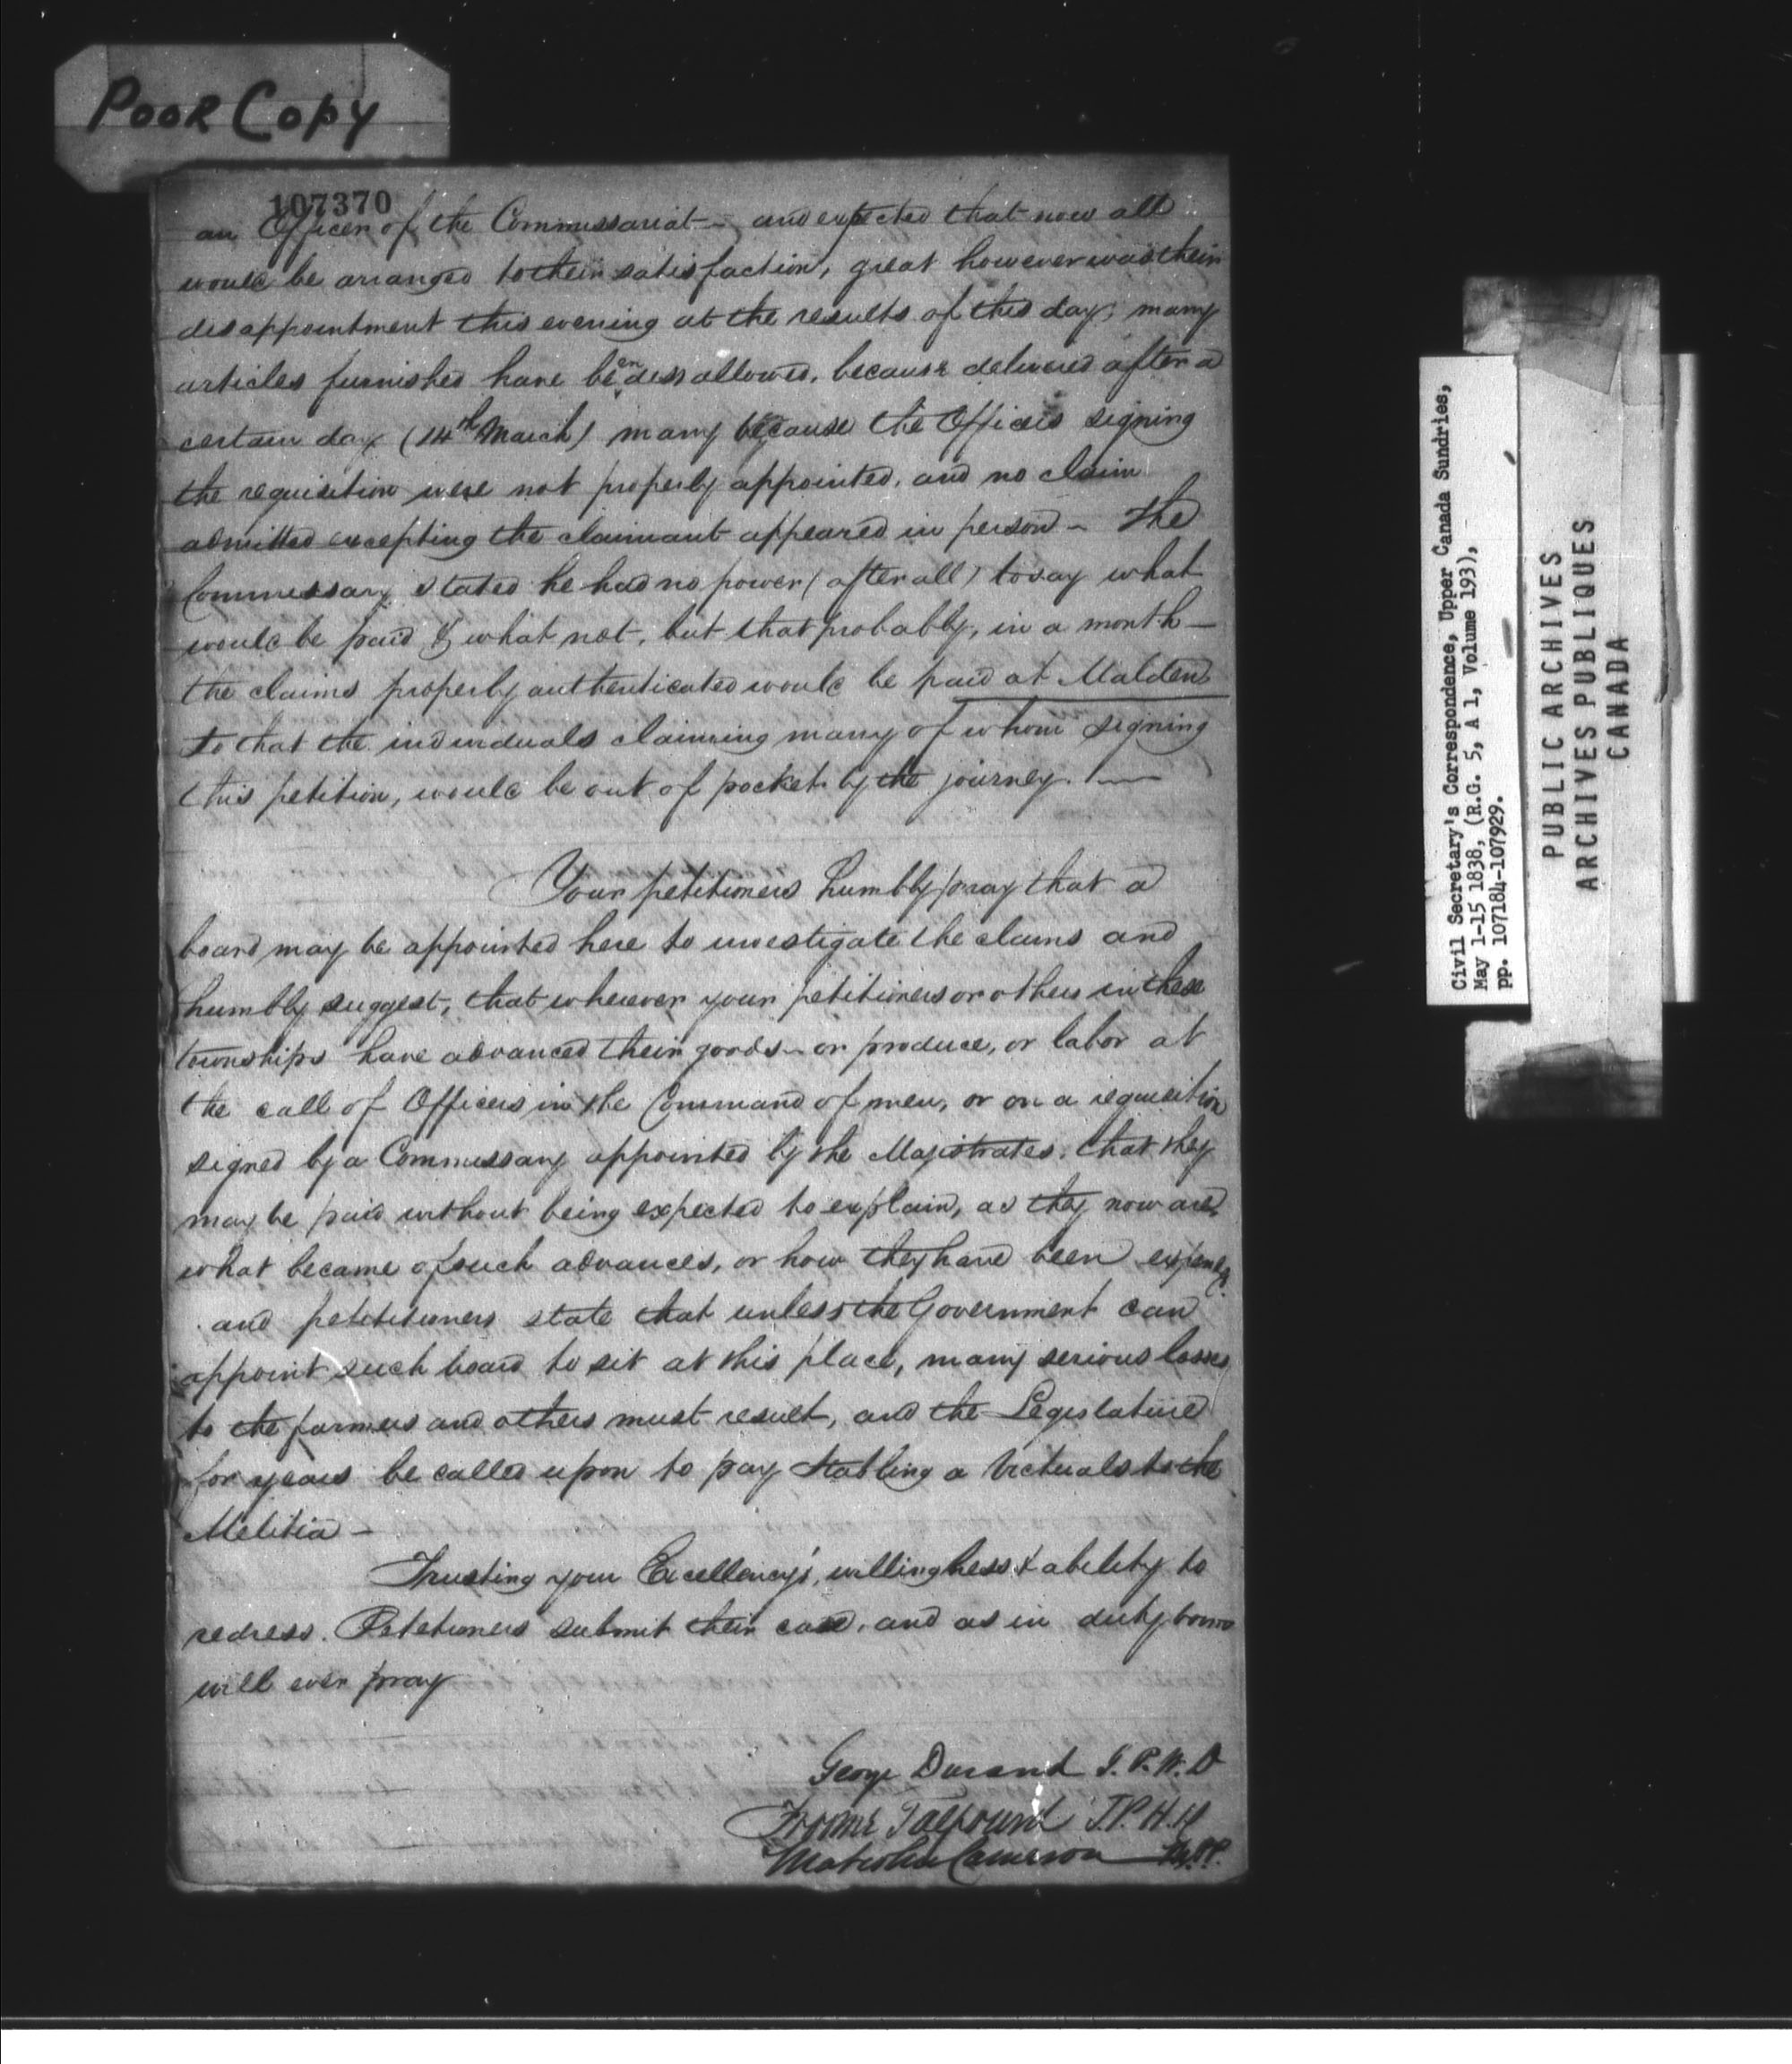 POOR COPY
107370
an Officer of the Commissariat - and expected that now all
would be arranged to their satisfaction, great however was their
disappointment this evening at the results of this day; many
articles furnished have been dissallowed, because delivered after a
certain day (14th March) many because the Officers signing
the requisition were not properly appointed, and no claim
admitted excepting the claimant appeared in person - The
Commissary stated he had no power (after all) to say what
would be paid & what not, but that probably, in a month -
the claims properly authenticated would be paid at Malden
So that the individuals claiming many of whom signing
this petition, would be out of pocket by the journey. -
Your petitioners humbly pray that a
board may be appointed here to investigate the claims and
humbly suggest, that wherever your petitioners or others in these
townships have advanced their goods - or produce, or labor at
the call of Officers in the Command of men, or on a requisition
signed by a Commissary appointed by the Magistrates, that they
may be paid without being expected to explain, as they now are,
what became of such advances, or how they have been
and petitioners state that unless the Government can
appoint such board to sit at this place, many serious losses
to the farmers and others must result, and the Legislature
for years be called upon to pay stabling a Victuals to the
Melitia -
Trusting your Excellency's, willingness & ability to
redress. Petetioners submit their case, and as in duty bound
will ever pray
George Durand J. P. W. D
Froome Talfourd J.P. H.
Malcolm Cameron
Civil Secretary's Correspondence, Upper Canada Sundries,
May 1-15 1838, (R.G. 5, A 1, Volume 193),
pp. 107184-107929.
PUBLIC ARCHIVES
ARCHIVES PUBLIQUES
CANADA